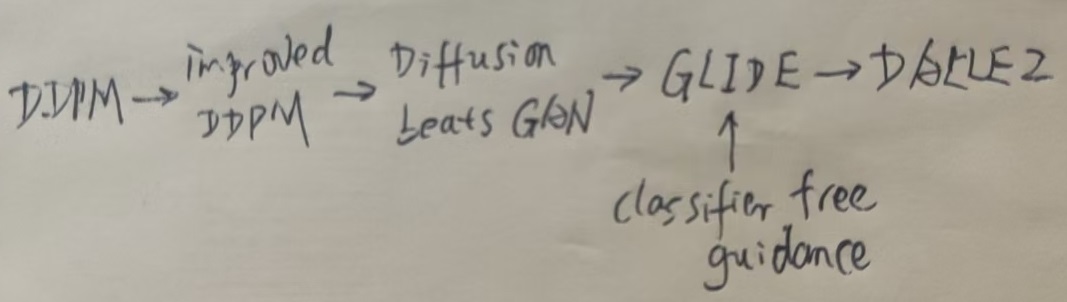 DDPM → improved DDPM → Diffusion beats GAN → GLIDE → DALLE2
↑
classifier free
guidance